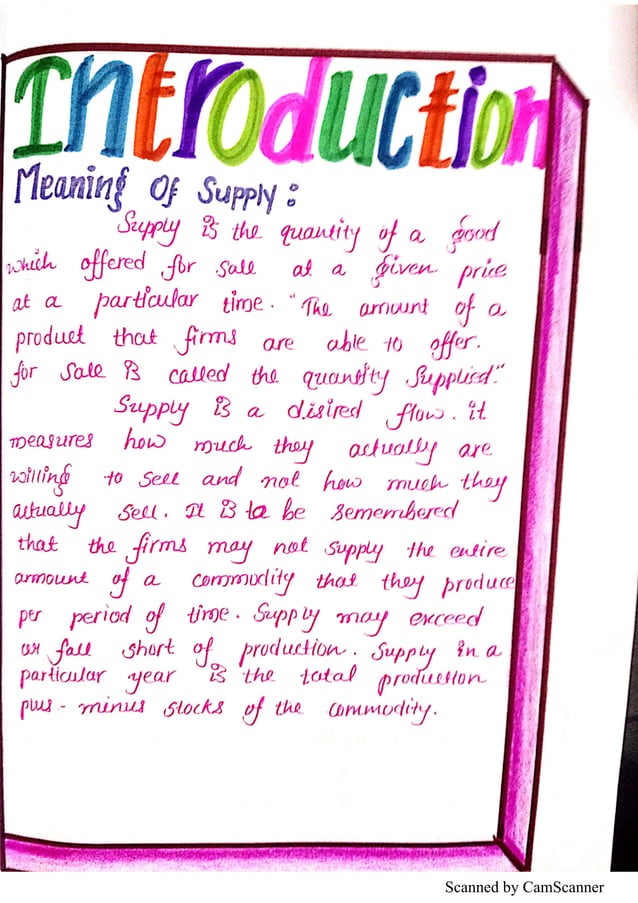 Introduction
Meaning Of Supply :
Supply is the quantity of a good
which offered for sale at a given price
at a particular time. "The amount of a
product that firms are able to offer.
for sale is called the quantity supplied."
Supply is a disired flow. it
measures how much they actually are
willing to sell and not how much they
actually sell. It is to be remembered
that the firms may not supply the entire
amount of a commodity that they produce
per period of time. Supply may exceed
or fall short of production. Supply in a
particular year is the total production
plus - minus stocks of the commodity.
Scanned by CamScanner